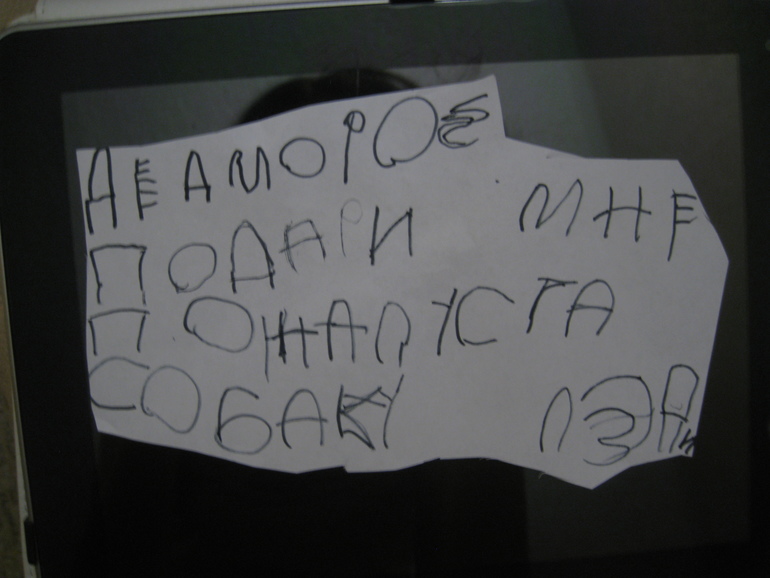 ДЕД МОРОЗ
ПОДАРИ МНЕ
ПОЖАЛУСТА
СОБАКУ ЛЭДИ